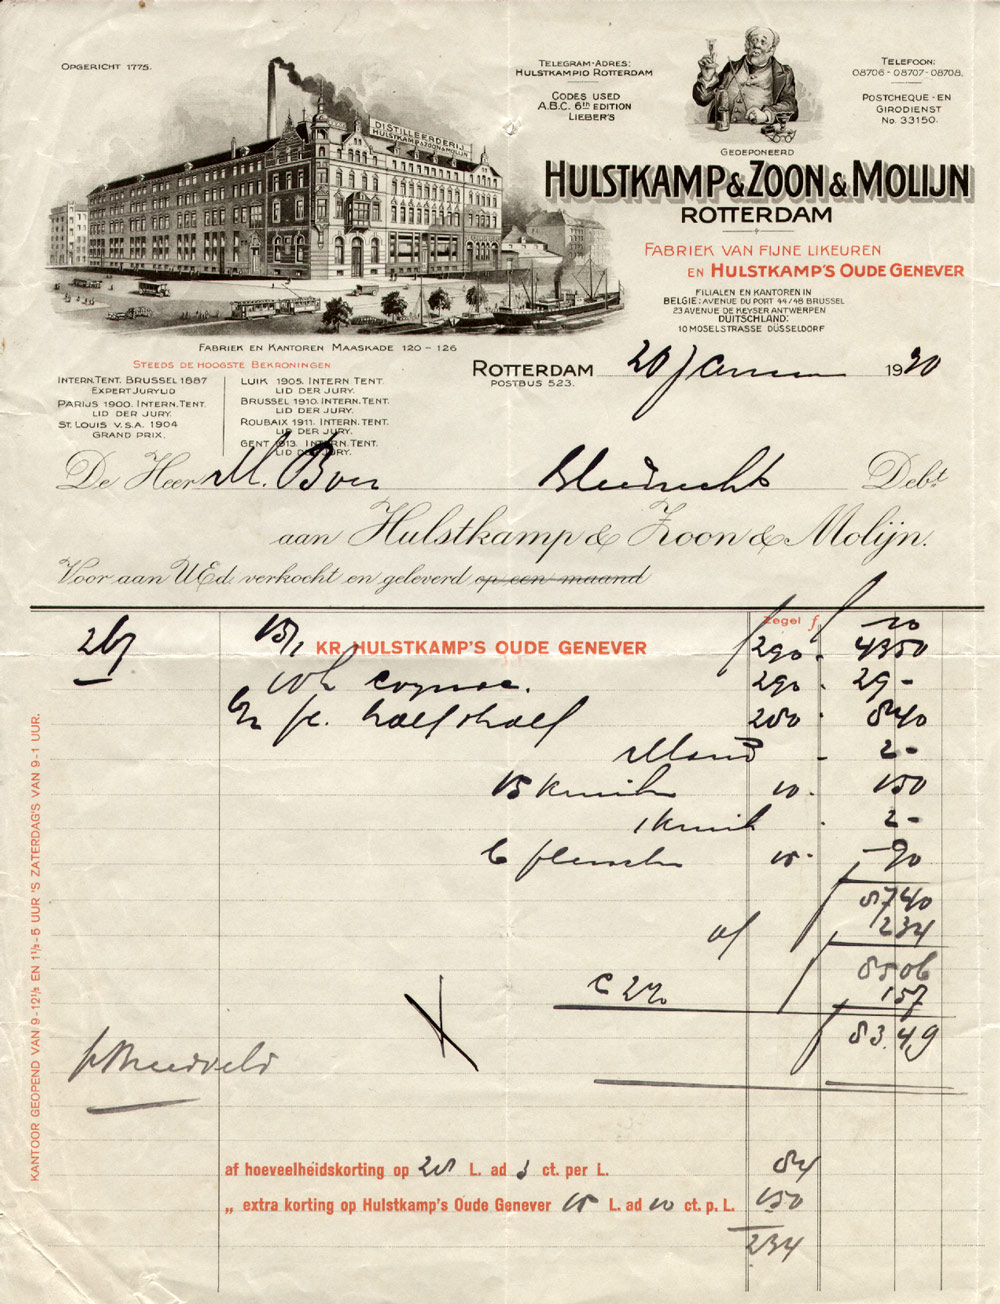 OPGERICHT 1775.
DISTILLEERDERIJ
HULSTKAMP & ZOON & MOLIJN
TELEGRAM-ADRES:
HULSTKAMPIO ROTTERDAM
CODES USED
A.B.C. 6th EDITION
LIEBER'S
TELEFOON:
08706-08707-08708.
POSTCHEQUE-EN
GIRODIENST
No. 33150.
GEDEPONEERD
HULSTKAMP & ZOON & MOLIJN
ROTTERDAM
FABRIEK VAN FIJNE LIKEUREN
EN HULSTKAMP'S OUDE GENEVER
FILIALEN EN KANTOREN IN
BELGIE: AVENUE DU PORT 44/48 BRUSSEL
23 AVENUE DE KEYSER ANTWERPEN
DUITSCHLAND:
10 MOSELSTRASSE DÜSSELDORF
FABRIEK EN KANTOREN MAASKADE 120-126
STEEDS DE HOOGSTE BEKRONINGEN
INTERN. TENT. BRUSSEL 1887
EXPERT JURYLID
PARIJS 1900. INTERN. TENT.
LID DER JURY.
ST. LOUIS V.S.A. 1904
GRAND PRIX.
LUIK 1905. INTERN TENT.
LID DER JURY.
BRUSSEL 1910. INTERN. TENT.
LID DER JURY.
ROUBAIX 1911. INTERN. TENT.
LID DER JURY.
GENT 1913. INTERN. TENT.
LID DER JURY.
ROTTERDAM 20 Januari 1930
POSTBUS 523.
De Heer M. Boer Debt
aan Hulstkamp & Zoon & Molijn.
Voor aan UEd. verkocht en geleverd op een maand
Zegel f - 10
267 15/1 KR. HULSTKAMP'S OUDE GENEVER 290 - 4350
cognac. 290 - 29 -
fl. half & half 280 - 840
Mand 2 -
15 10 - 150
1 2 -
6 flessen 15 - - 90
8740
af 234
8506
C 2% 157
83.49
KANTOOR GEOPEND VAN 9-12½ EN 1½-5 UUR 'S ZATERDAG'S VAN 9-1 UUR.
af hoeveelheidskorting op 28 L. ad 3 ct. per L. 84
„ extra korting op Hulstkamp's Oude Genever 15 L. ad 10 ct. p. L. 150
234